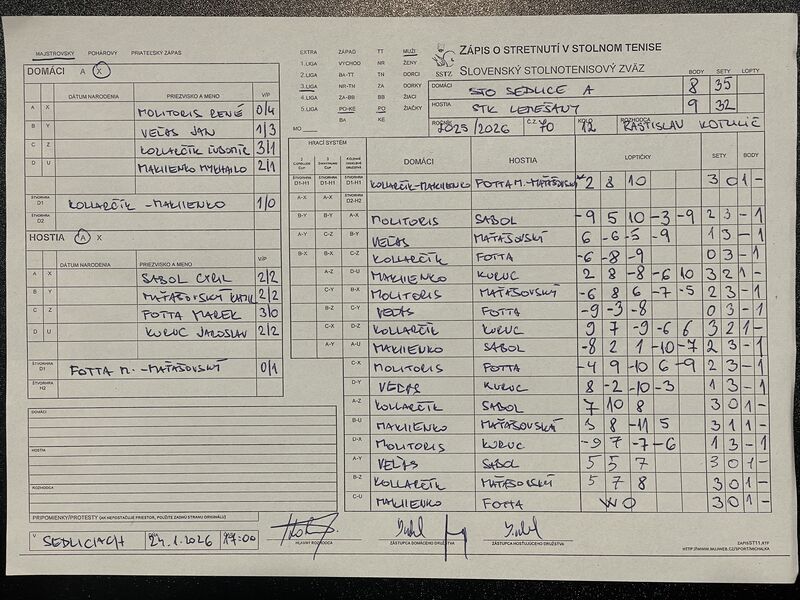 MAJSTROVSKÝ POHÁROVÝ PRIATEĽSKÝ ZÁPAS
DOMÁCI A X
DÁTUM NARODENIA PRIEZVISKO A MENO V/P
A X MOLITORIS RENÉ 0/4
B Y VEĽAS JAN 1/3
C Z KOLLARČÍK ĽUBOMÍR 3/1
D U MAKIIENKO MYKHAILO 2/1
ŠTVORHRA D1 KOLLARČÍK - MAKIIENKO 1/0
ŠTVORHRA D2
HOSTIA A X
DÁTUM NARODENIA PRIEZVISKO A MENO V/P
A X SABOL CYRIL 2/2
B Y MAŤAŠOVSKÝ 2/2
C Z FOTTA MAREK 3/0
D U KURUC JAROSLAV 2/2
ŠTVORHRA D1 FOTTA M. - MAŤAŠOVSKÝ 0/1
ŠTVORHRA H2
DOMÁCI
HOSTIA
ROZHODCA
PRIPOMIENKY/PROTESTY (AK NEPOSTAČUJE PRIESTOR, POUŽITE ZADNÚ STRANU ORIGINÁLU)
V SEDLICIACH 24.1.2026 17:00
EXTRA ZÁPAD TT MUŽI
1.LIGA VÝCHOD NR ŽENY
2.LIGA BA-TT TN DORCI
3.LIGA NR-TN ZA DORKY
4.LIGA ZA-BB BB ŽIACI
5.LIGA PO-KE PO ŽIAČKY
MO BA KE
SSTZ
ZÁPIS O STRETNUTÍ V STOLNOM TENISE
SLOVENSKÝ STOLNOTENISOVÝ ZVÄZ
BODY SETY LOPTY
DOMÁCI STO SEDLICE A 8 35
HOSTIA STK LEMEŠANY 9 32
ROČNÍK 2025/2026 Č.Z. 70 KOLO 12 ROZHODCA RASTISLAV KOTULIČ
HRACÍ SYSTÉM
DOMÁCI HOSTIA LOPTIČKY SETY BODY
ŠTVORHRA D1-H1 ŠTVORHRA D1-H1 ŠTVORHRA D1-H1 KOLLARČÍK-MAKIIENKO FOTTA M.-MAŤAŠOVSKÝ 2 8 10 3 0 1 -
A-X A-X D2-H2
B-Y B-Y A-X MOLITORIS SABOL -9 5 10 -3 -9 2 3 - 1
A-Y C-Z B-Y VEĽAS MAŤAŠOVSKÝ 6 -6 -5 -9 1 3 - 1
B-X B-X C-Z KOLLARČÍK FOTTA -6 -8 -9 0 3 - 1
A-Z D-U MAKIIENKO KURUC 2 8 -8 -6 10 3 2 1 -
C-Y B-X MOLITORIS MAŤAŠOVSKÝ -6 8 6 -7 -5 2 3 - 1
B-Z C-Y VEĽAS FOTTA -9 -3 -8 0 3 - 1
C-X D-Z KOLLARČÍK KURUC 9 7 -9 -6 6 3 2 1 -
A-Y A-U MAKIIENKO SABOL -8 2 1 -10 -7 2 3 - 1
C-X MOLITORIS FOTTA -4 9 -10 6 -9 2 3 - 1
D-Y VEĽAS KURUC 8 -2 -10 -3 1 3 - 1
A-Z KOLLARČÍK SABOL 7 10 8 3 0 1 -
B-U MAKIIENKO MAŤAŠOVSKÝ 3 8 -11 5 3 1 1 -
D-X MOLITORIS KURUC -9 7 -7 -6 1 3 - 1
A-Y VEĽAS SABOL 5 5 7 3 0 1 -
B-Z KOLLARČÍK MAŤAŠOVSKÝ 5 7 8 3 0 1 -
C-U MAKIIENKO FOTTA WO 3 0 1 -
HLAVNÝ ROZHODCA ZÁSTUPCA DOMÁCEHO DRUŽSTVA ZÁSTUPCA HOSŤUJÚCEHO DRUŽSTVA
ZAPISST11.RTF